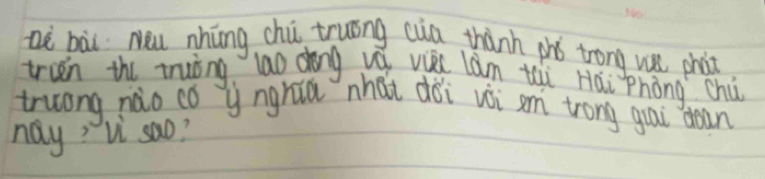 Đề bài: Nêu những chủ trương của thành phố trong việc phát
triển thị trường lao động và việc làm tại Hải Phòng. Chủ
trương nào có ý nghĩa nhất đối với em trong giai đoạn
này? Vì sao?